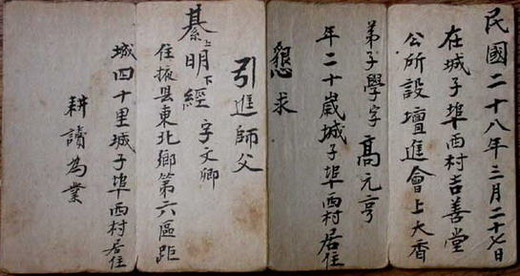 民國二十八年三月二十七日
在城子埠西村吉善堂
公所設壇進會上大香
弟子學字 高元亨
年二十歲城子埠西村居住
懇求
引進師父
綦上明下經 字文卿
住掖县東北鄉第六區距
城四十里城子埠西村居住
耕讀為業